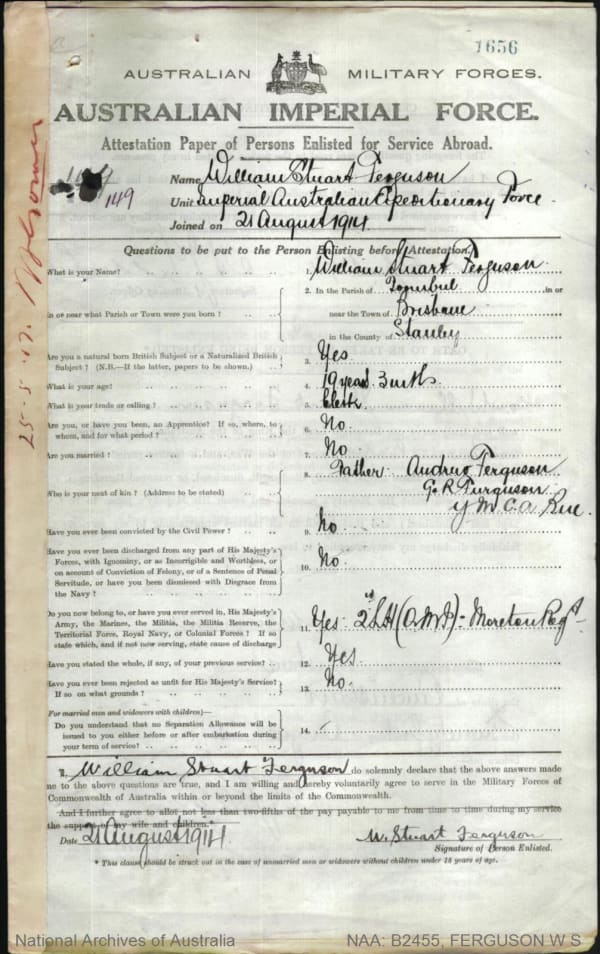 1656
AUSTRALIAN MILITARY FORCES.
AUSTRALIAN IMPERIAL FORCE.
Attestation Paper of Persons Enlisted for Service Abroad.
149
Name William Stuart Ferguson
Unit Imperial Australian Expeditionary Force
Joined on 21 August 1914
Questions to be put to the Person Enlisting before Attestation.
What is your Name? 1. William Stuart Ferguson
2. In the Parish of Toombul in or
In or near what Parish or Town were you born? near the Town of Brisbane
in the County of Stanley
Are you a natural born British Subject or a Naturalized British
Subject? (N.B.—If the latter, papers to be shown.) 3. Yes
What is your age? 4. 19 years 3 mths
What is your trade or calling? 5. Clerk
Are you, or have you been, an Apprentice? If so, where, to
whom, and for what period? 6. No
Are you married? 7. No
8. Father Andrew Ferguson
Who is your next of kin? (Address to be stated) G. R. Furguson
Y M C A
Have you ever been convicted by the Civil Power? 9. No
Have you ever been discharged from any part of His Majesty's
Forces, with Ignominy, or as Incorrigible and Worthless, or
on account of Conviction of Felony, or of a Sentence of Penal
Servitude, or have you been dismissed with Disgrace from
the Navy? 10. No.
Do you now belong to, or have you ever served in, His Majesty's
Army, the Marines, the Militia, the Militia Reserve, the
Territorial Force, Royal Navy, or Colonial Forces? If so
state which, and if not now serving, state cause of discharge 11. Yes - 2nd L H - Moreton Regt
Have you stated the whole, if any, of your previous service? 12. Yes
Have you ever been rejected as unfit for His Majesty's Service?
If so on what grounds? 13. No.
(For married men and widowers with children)—
Do you understand that no Separation Allowance will be
issued to you either before or after embarkation during
your term of service? 14.
I, William Stuart Ferguson do solemnly declare that the above answers made
me to the above questions are true, and I am willing and hereby voluntarily agree to serve in the Military Forces of
Commonwealth of Australia within or beyond the limits of the Commonwealth.
And I further agree to allot not less than two-fifths of the pay payable to me from time to time during my service
the support of my wife and children.*
Date 21 August 1914 W. Stuart Ferguson
Signature of Person Enlisted.
* This clause should be struck out in the case of unmarried men or widowers without children under 18 years of age.
25-5-17.
National Archives of Australia NAA: B2455, FERGUSON W S